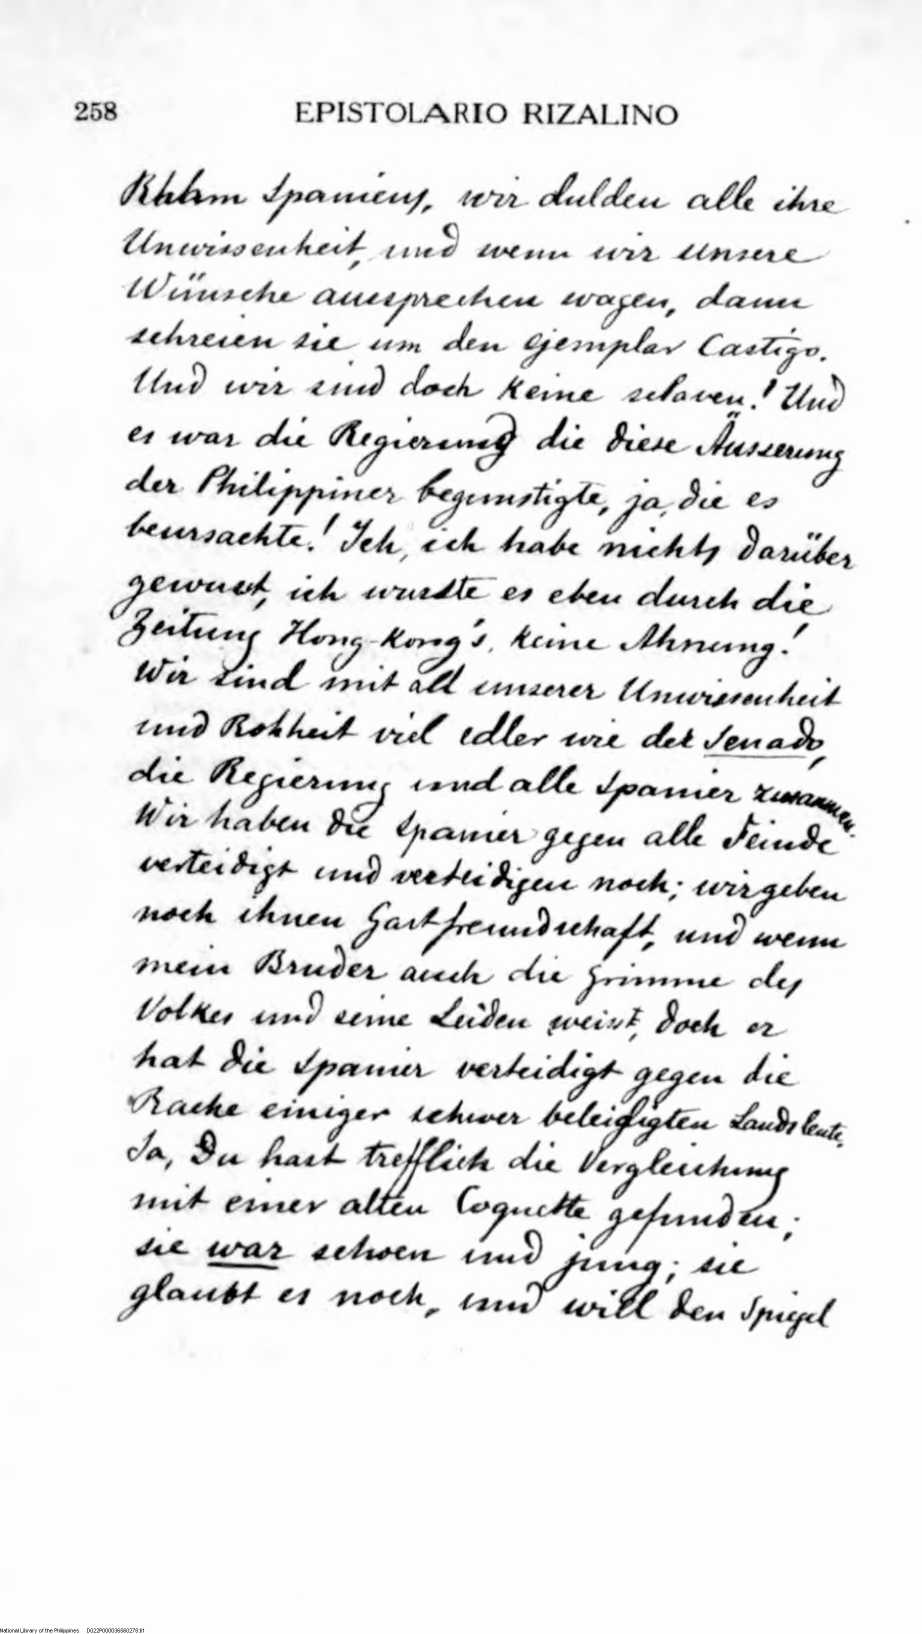 258
EPISTOLARIO RIZALINO
Ruhm Spaniens, wir dulden alle ihre
Unwissenheit, und wenn wir unsere
Wünsche aussprechen wagen, dann
schreien sie um den ejemplar Castigo.
Und wir sind doch keine sclaven! Und
es war die Regierung die diese Äusserung
der Philippiner begunstigte, ja, die es
beursachte! Ich, ich habe nichts darüber
gewusst, ich wusste es eben durch die
Zeitung Hong-Kong's. Keine Ahnung!
Wir sind mit all unserer Unwissenheit
und Rohheit viel edler wie der Senado,
die Regierung und alle Spanier zusammen.
Wir haben die Spanier gegen alle Feinde
verteidigt und verteidigen noch; wir geben
noch ihnen Gastfreundschaft, und wenn
mein Bruder auch die Grimme des
Volkes und seine Leiden weisst, doch er
hat die Spanier verteidigt gegen die
Rache einiger schwer beleidigten Landsleute.
Ja, Du hast trefflich die Vergleichung
mit einer alten Coquette gefunden;
sie war schoen und jung; sie
glaubt es noch, und will den Spiegel
National Library of the Philippines D022P000036580278.tif